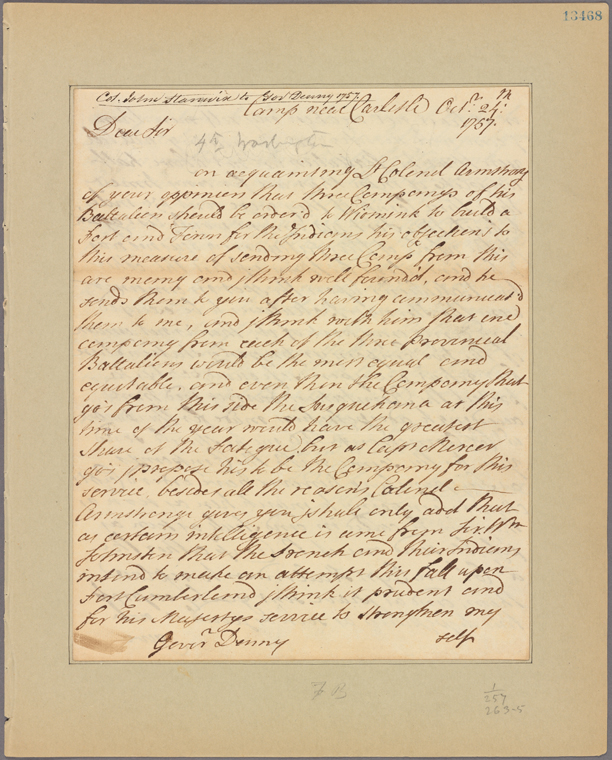 13468
Col. John Stanwix to Gov Denny 1757.
Camp near Carlisle Octr. 24th.
1757.
Dear Sir
on acquainting Lt Colonel Armstrong
of your oppinion that three Companys of his
Battalion should be order'd to Wiomink to build a
Fort and Town for the Indians his objections to
this measure of sending three Comps from this
are many and j think well founded, and he
sends them to you after having communicated
them to me, and j think with him that one
company from each of the three provincial
Battalions would be the most equal and
equitable. and even then the Company that
go's from this side the Susquehana at this
time of the year would have the greatest
share of the Fatigue, but as Capt Mercer
go's j propose his to be the Company for this
service. besides all the reasons Colonel
Armstrong gives you j shall only add that
as certain intelligence is come from Sir Wm
Johnston that the French and their Indians
intend to make an attempt this fall upon
Fort Cumberland j think it prudent and
for his Majestys service to strengthen my
Goverr Denny self
1
257
263-5